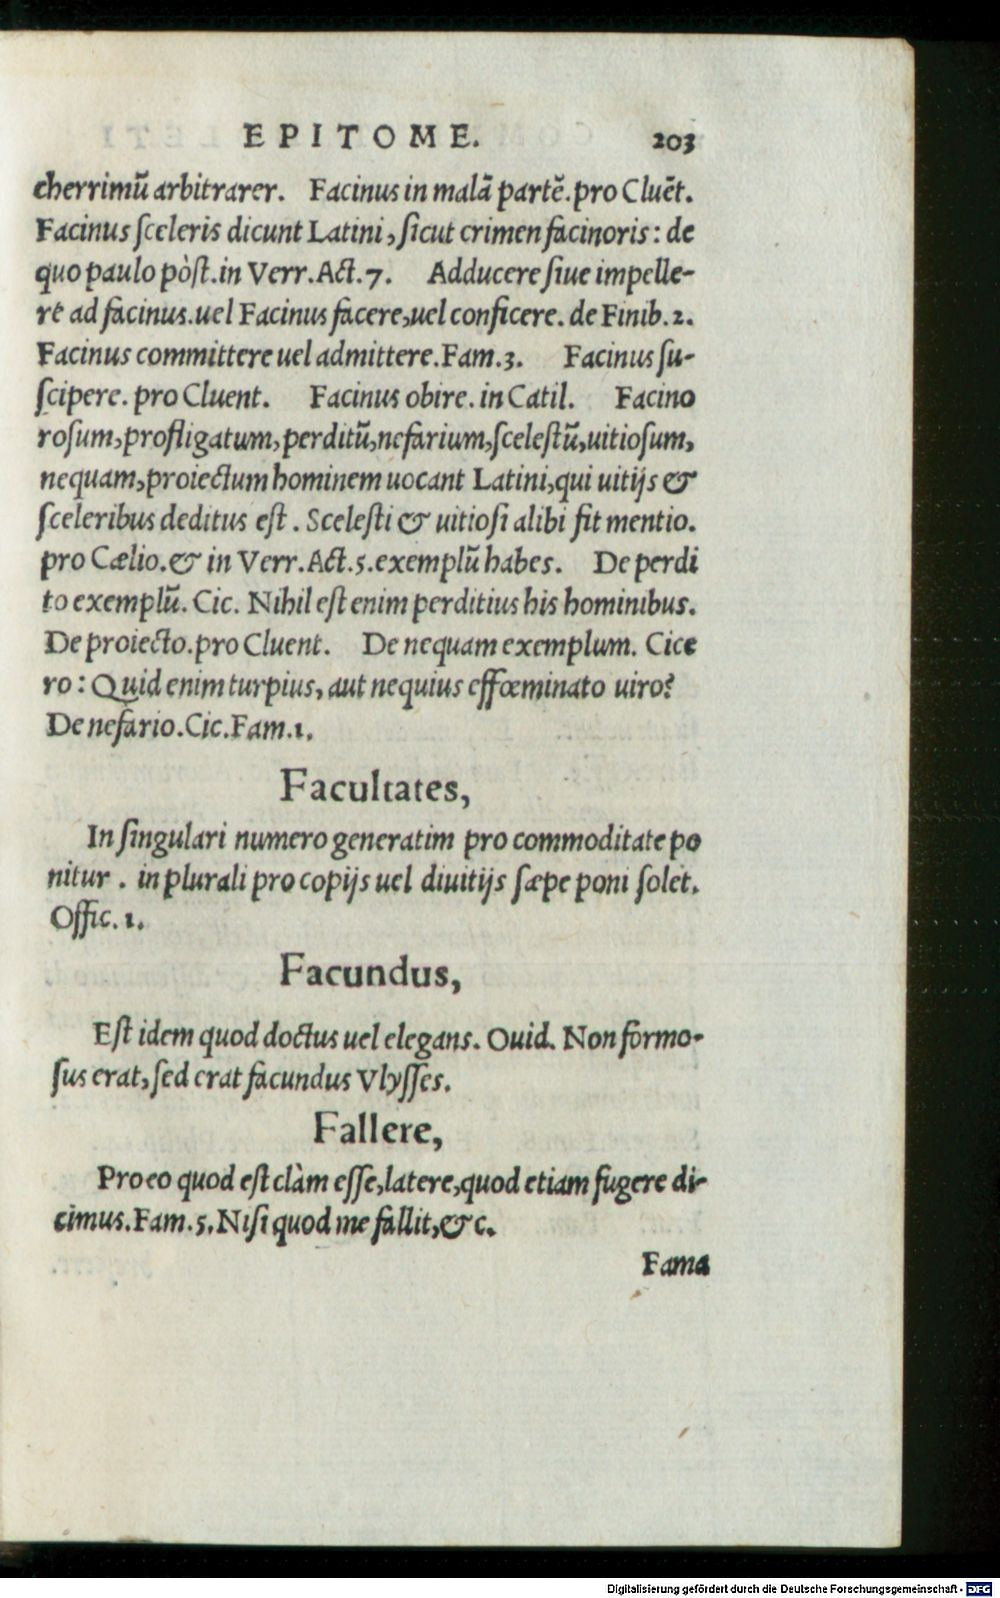 EPITOME. 203
cherrimũ arbitrarer. Facinus in malã partẽ. pro Cluẽt.
Facinus sceleris dicunt Latini, sicut crimen facinoris: de
quo paulo pòst. in Verr. Act. 7. Adducere siue impelle-
re ad facinus. uel Facinus facere, uel conficere. de Finib. 2.
Facinus committere uel admittere. Fam. 3. Facinus su-
scipere. pro Cluent. Facinus obire. in Catil. Facino
rosum, profligatum, perditũ, nefarium, scelestũ, uitiosum,
nequam, proiectum hominem uocant Latini, qui uitijs &
sceleribus deditus est. Scelesti & uitiosi alibi fit mentio.
pro Cælio. & in Verr. Act. 5. exemplũ habes. De perdi
to exemplũ. Cic. Nihil est enim perditius his hominibus.
De proiecto. pro Cluent. De nequam exemplum. Cice
ro: Quid enim turpius, aut nequius effœminato uiro?
De nefario. Cic. Fam. 1.
Facultates,
In singulari numero generatim pro commoditate po
nitur. in plurali pro copijs uel diuitijs sæpe poni solet.
Offic. 1.
Facundus,
Est idem quod doctus uel elegans. Ouid. Non formo-
sus erat, sed erat facundus Vlysses.
Fallere,
Pro eo quod est clàm esse, latere, quod etiam fugere di-
cimus. Fam. 5. Nisi quod me fallit, & c.
Fama
Digitalisierung gefördert durch die Deutsche Forschungsgemeinschaft - DFG